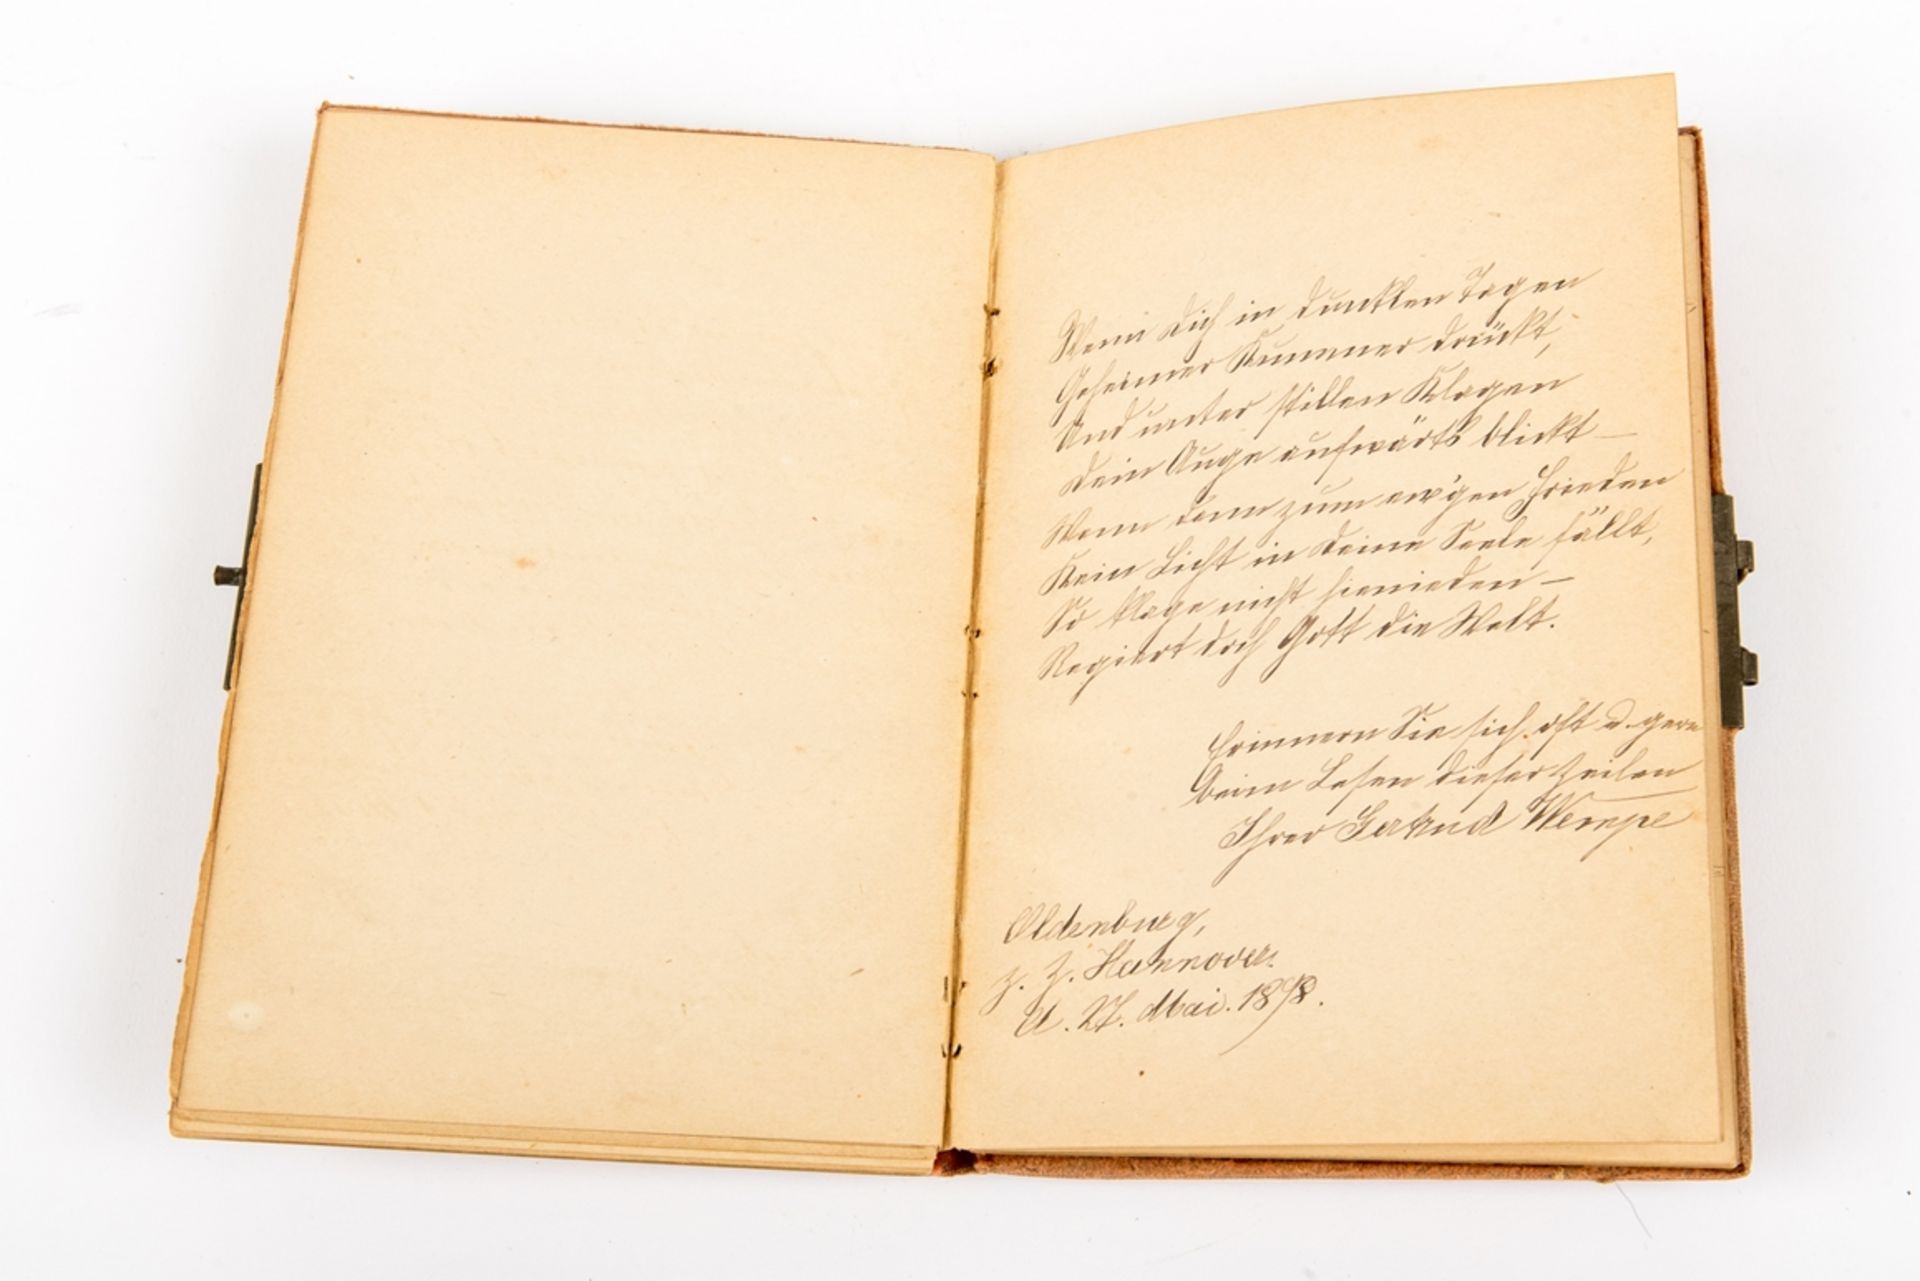 Wenn Dich in dunklen Tagen
Geheimer Kummer drückt,
Und unter stillen Klagen
Dein Auge aufwärts blickt –
Wenn dann zum ew'gen Frieden
Kein Licht in Deine Seele fällt,
So klage nicht hienieden –
Regiert doch Gott die Welt.
Erinnern Sie sich oft u. gern
beim Lesen dieser Zeilen
Ihrer Gertrud Wempe
Oldenburg,
z. Z. Hannover.
d. 27. Mai. 1898.